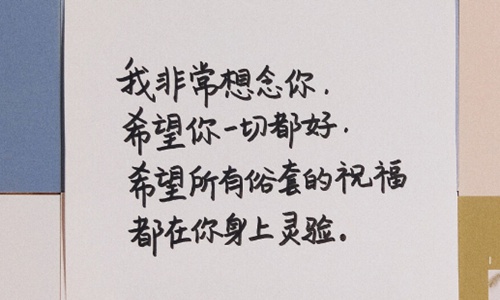 我非常想念你.
希望你一切都好.
希望所有俗套的祝福
都在你身上灵验。